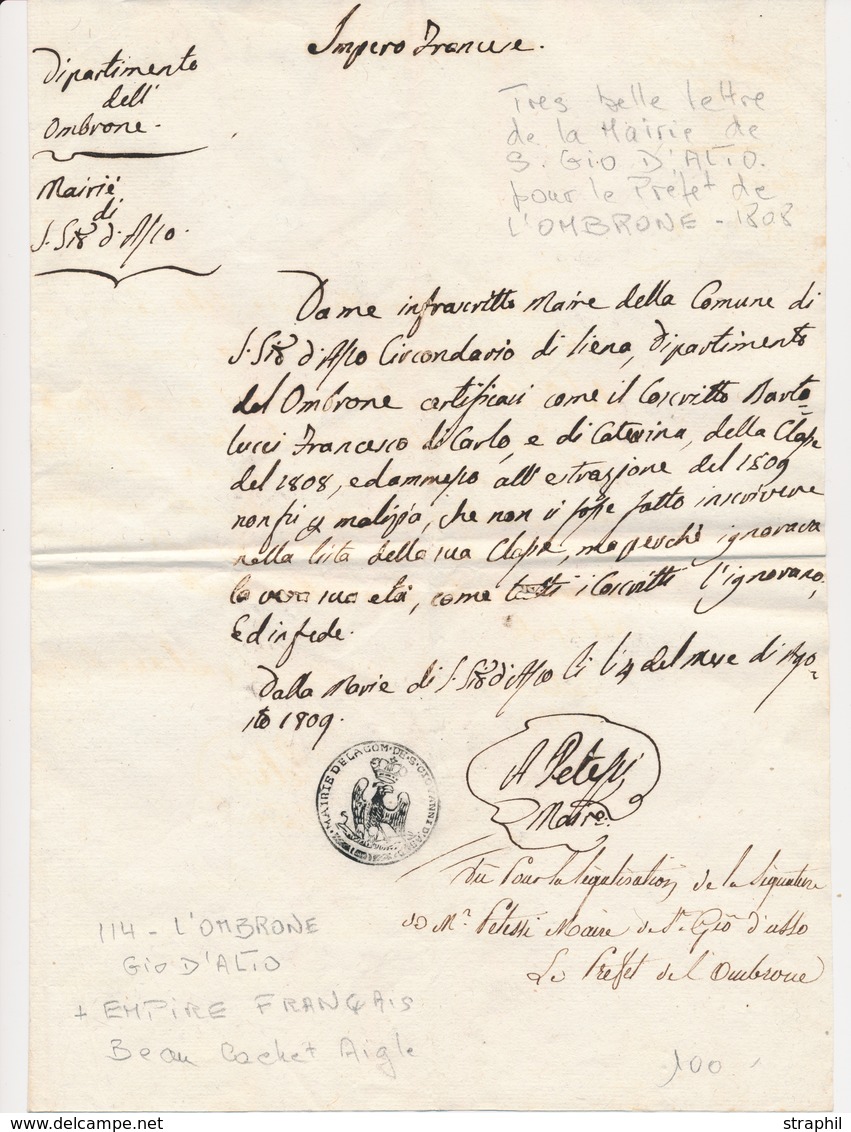 Impero Francese.
Dipartimento
dell'
Ombrone.
Mairie
di
S. Gio d'Asso.
Tres belle lettre
de la Mairie de
S. GIO D'ALTO.
pour le Préfet de
L'OMBRONE - 1808
Da me infrascritto Maire della Comune di
S. Gio d'Asso Circondario di Siena, Dipartimento
del Ombrone certificasi come il Coscritto Barto
lucci Francesco di Carlo, e di Caterina, della Classe
del 1808, ed ammesso all'estrazione del 1809
non fu p malizia, che non si fosse fatto inscrivere
nella lista della sua Classe, ma perchè ignorava
la vera sua età, come tutti i Coscritti l'ignorano,
Ed in fede.
Dalla Marie di S. Gio d'Asso li 14 del mese di Ago=
sto 1809.
MAIRIE DE LA COM. DE S. GIOVANNI D'ASSO
A Petessi
Maire.
Vu Pour la légalisation de la Signature
de Mr. Petessi Maire de St. Gio d'asso
Le Prefet de l'Ombrone
114 - L'OMBRONE
GIO D'ALTO
+ EMPIRE FRANÇAIS
Beau Cachet Aigle
100
delcampe.net
straphil